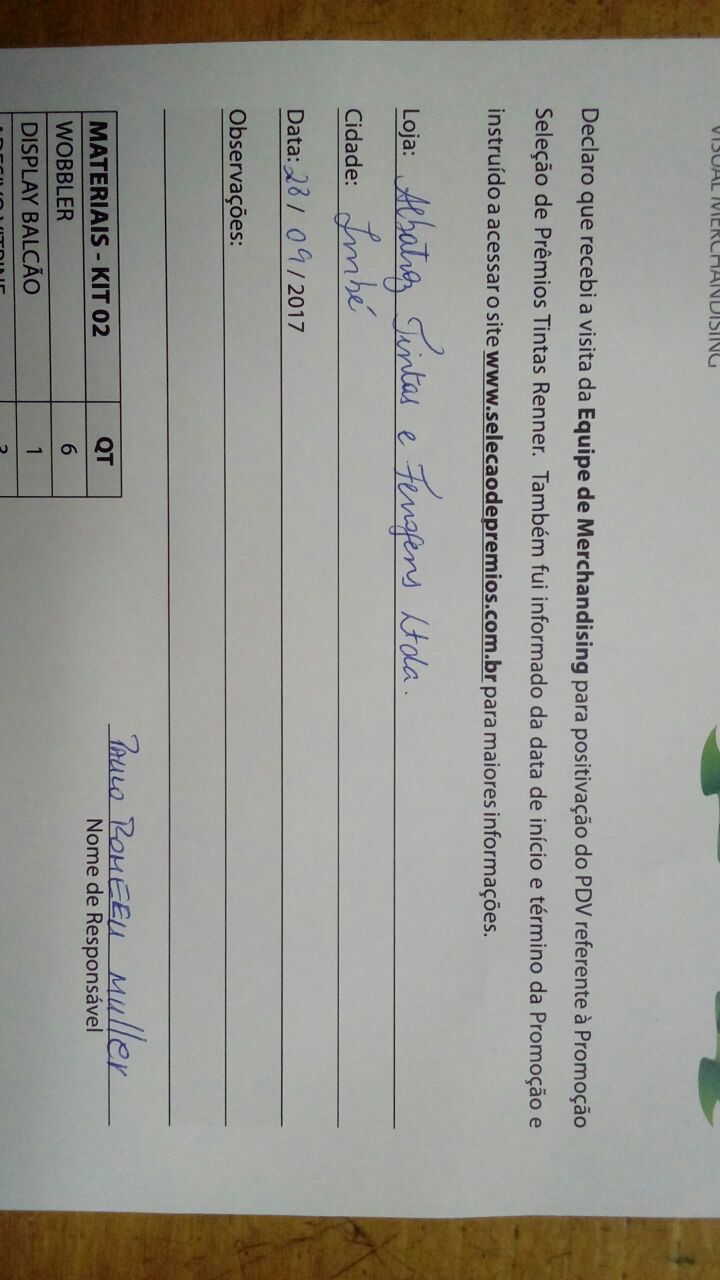 VISUAL MERCHANDISING
Declaro que recebi a visita da Equipe de Merchandising para positivação do PDV referente à Promoção
Seleção de Prêmios Tintas Renner. Também fui informado da data de início e término da Promoção e
instruído a acessar o site www.selecaodepremios.com.br para maiores informações.
Loja: Albatroz Tintas e Ferragens Ltda.
Cidade: Imbé
Data: 28 / 09 / 2017
Observações:
PAULO ROMEEU Muller
Nome de Responsável
MATERIAIS - KIT 02 QT
WOBBLER 6
DISPLAY BALCÃO 1
ADESIVO VITRINE